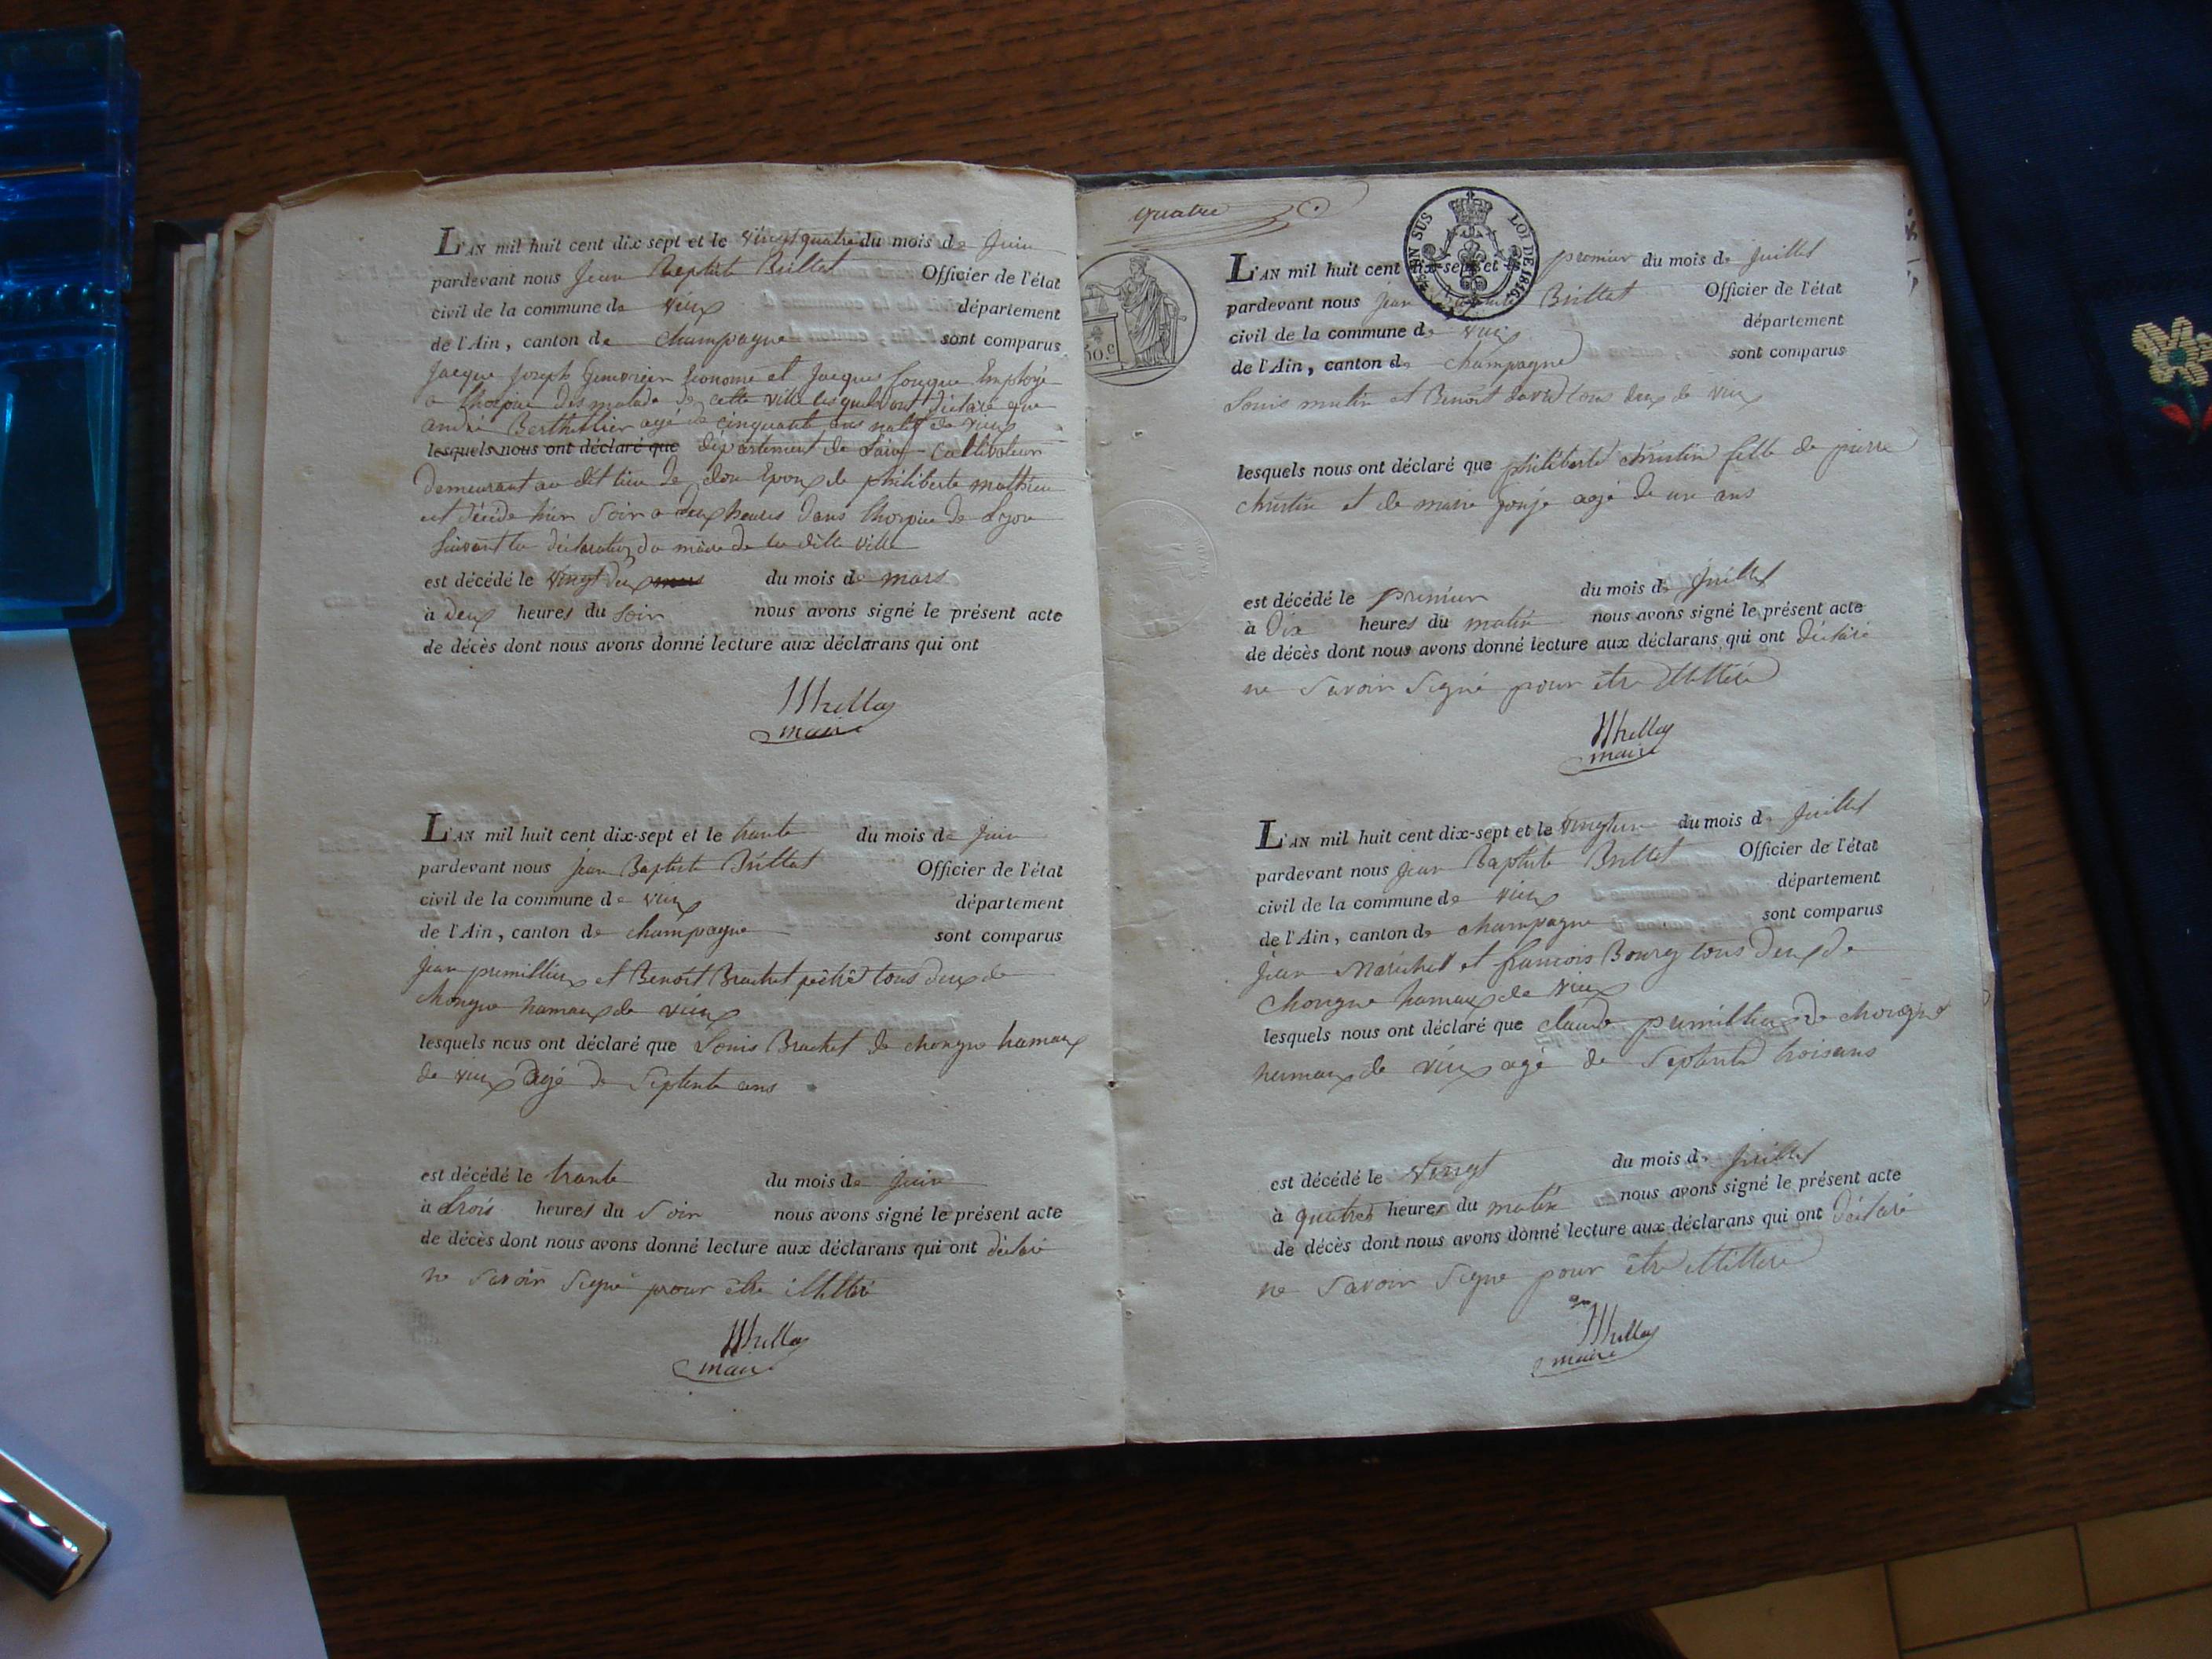 L'AN mil huit cent dix sept et le vingt quatre du mois de Juin
pardevant nous Jean Baptiste Brillat Officier de l'état
civil de la commune de vieux département
de l'Ain, canton de champagne sont comparus
Jacque Joseph Econome et Jacques Employé
a lhospice des malade de cette ville lesquels ont déclaré que
andré Berthellier agé de cinquante ans natif de vieux
lesquels nous ont déclaré que département de Lain Cultivateur
demeurant au dit lieu de don Epoux de philiberte mathieu
est décédé hier soir a deux heures dans lhospice de Lyon
suivant la déclaration du maire de la ditte ville
est décédé le vingt deux mars du mois de mars
à deux heures du soir nous avons signé le présent acte
de décès dont nous avons donné lecture aux déclarans qui ont
maire
L'AN mil huit cent dix-sept et le trante du mois de juin
pardevant nous jean Baptiste Brillat Officier de l'état
civil de la commune de vieux département
de l'Ain, canton de champagne sont comparus
jean premillieux et Benoit Brachet tous deux de
chongne hamaux de vieux
lesquels nous ont déclaré que Louis Brachet de chongne hamaux
de vieux agé de Septente ans
est décédé le trante du mois de juin
à trois heures du Soir nous avons signé le présent acte
de décès dont nous avons donné lecture aux déclarans qui ont déclaré
ne Savoir Signé pour être illittéré
maire
quatre
EN SUS LOI DE 1816.
50.c
L'AN mil huit cent dix-sept et le premier du mois de juillet
pardevant nous jean Baptiste Brillat Officier de l'état
civil de la commune de vieux département
de l'Ain, canton de champagne sont comparus
Louis mutin et Benoit david tous deux de vieux
lesquels nous ont déclaré que philiberte christin fille de pierre
christin et de marie agé de un ans
est décédé le premier du mois de Juillet
à dix heures du matin nous avons signé le présent acte
de décès dont nous avons donné lecture aux déclarans qui ont déclaré
ne Savoir Signé pour être illittéré
maire
L'AN mil huit cent dix-sept et le vingtun du mois de Juillet
pardevant nous jean Baptiste Brillat Officier de l'état
civil de la commune de vieux département
de l'Ain, canton de champagne sont comparus
jean Maréchal et francois Bourg tous deux de
chongne hamaux de vieux
lesquels nous ont déclaré que claude premillieux de chongne
hamaux de vieux agé de Septente troisans
est décédé le vingt du mois de juillet
à quatres heures du matin nous avons signé le présent acte
de décès dont nous avons donné lecture aux déclarans qui ont déclaré
ne Savoir Signé pour être illittéré
maire